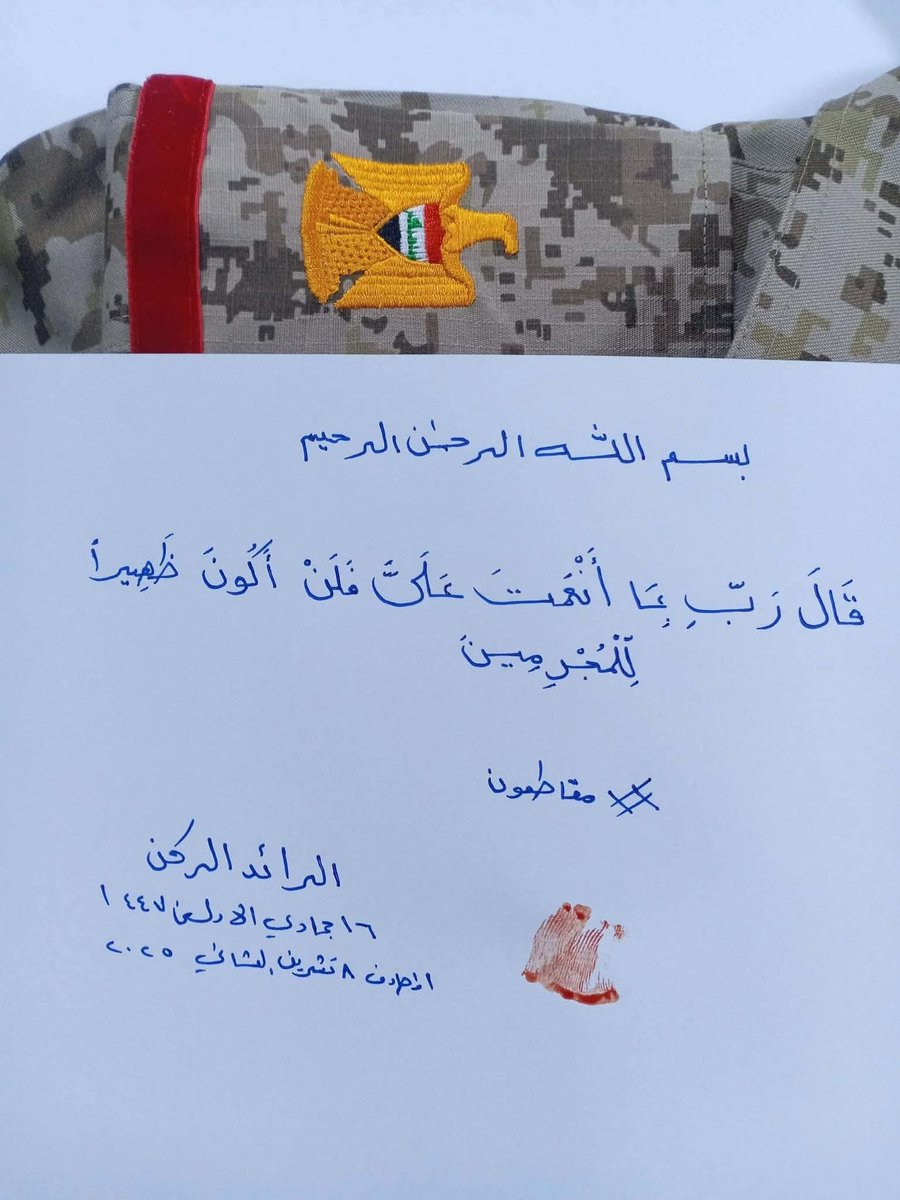 بسم الله الرحمٰن الرحيم
قَالَ رَبِّ بِمَا أَنْعَمْتَ عَلَيَّ فَلَنْ أَكُونَ ظَهِيراً
لِّلْمُجْرِمِينَ
# مقاطعون
الرائد الركن
١٦ جمادي الاولى ١٤٤٧
الموافق ٨ تشرين الثاني ٢٠٢٥